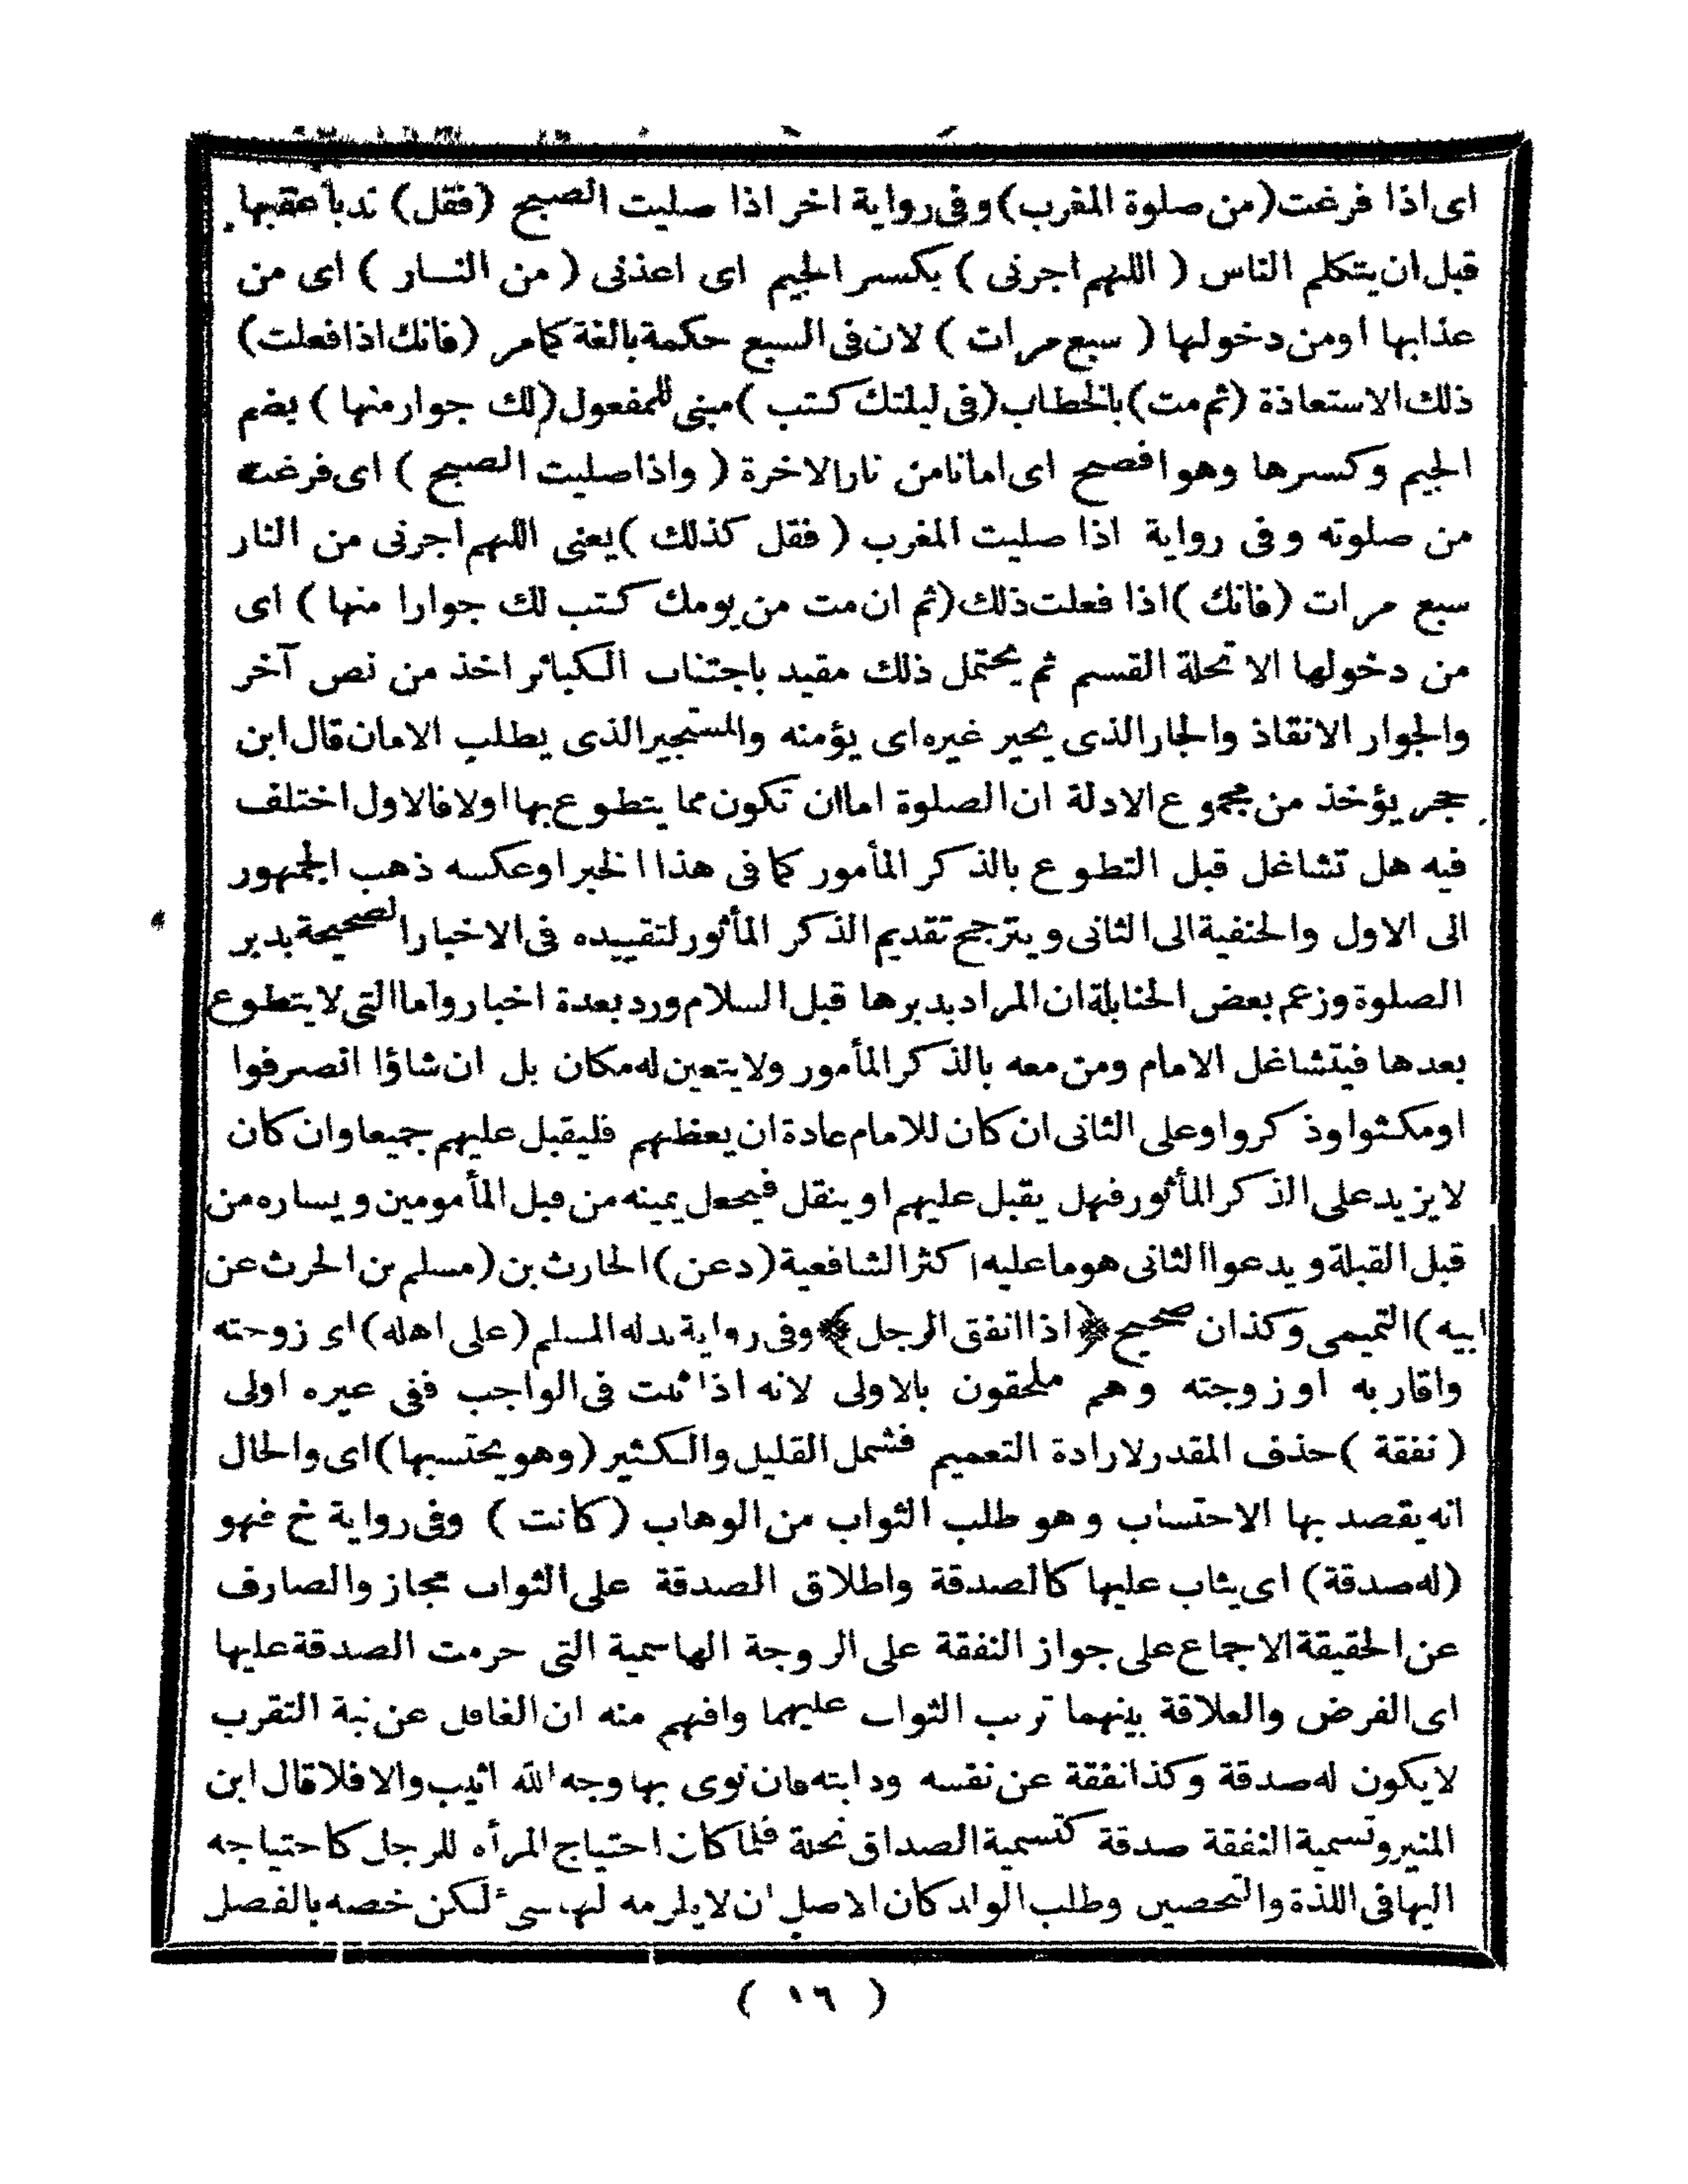 اى اذا فرغت (من صلوة المغرب) وفى رواية اخر اذا صليت الصبح (فقل) ندبا عقبها
قبل ان يتكلم الناس ( اللهم اجرنى ) بكسر الجيم اى اعذنى ( من النسار ) اى من
عذابها او من دخولها ( سبع مرات ) لان فى السبع حكمة بالغة كمامر (فانك اذا فعلت)
ذلك الاستعاذة (ثم مت) بالخطاب (فى ليلتك كتب ) مبنى للمفعول (لك جوار منها ) بضم
الجيم وكسرها وهو افصح اى امانا من نار الاخرة ( واذا صليت الصبح ) اى فرغت
من صلوته وفى رواية اذا صليت المغرب ( فقل كذلك ) يعنى اللهم اجرنى من النار
سبع مرات (فانك ) اذا فعلت ذلك (ثم ان مت من يومك كتب لك جوارا منها ) اى
من دخولها الا تحلة القسم ثم يحتمل ذلك مقيد باجتناب الكبائر اخذ من نص آخر
والجوار الانقاذ والجار الذى يجير غيره اى يؤمنه والمستجير الذى يطلب الامان قال ابن
حجر يؤخذ من مجموع الادلة ان الصلوة اما ان تكون مما يتطوع بها اولا فالاول اختلف
فيه هل تشاغل قبل التطوع بالذكر المأمور كما فى هذا الخبر او عكسه ذهب الجمهور
الى الاول والحنفية الى الثانى ويترجح تقديم الذكر المأثور لتقييده فى الاخبار الصحيحة بدبر
الصلوة وزعم بعض الحنابلة ان المراد بدبرها قبل السلام ورد بعدة اخبار واما التى لا يتطوع
بعدها فيتشاغل الامام ومن معه بالذكر المأمور ولا يتعين له مكان بل ان شاؤا انصرفوا
او مكثوا وذكروا وعلى الثانى ان كان للامام عادة ان يعظهم فليقبل عليهم جميعا وان كان
لا يزيد على الذكر المأثور فهل يقبل عليهم او ينقل فيجعل يمينه من قبل المأمومين ويساره من
قبل القبلة ويدعوا الثانى هو ما عليه اكثر الشافعية (د عن) الحارث بن (مسلم بن الحرث عن
ابيه) التميمى وكذان صحيح ﴿اذا انفق الرجل﴾ وفى رواية بدله المسلم (على اهله) اى زوجته
واقاربه او زوجته وهم ملحقون بالاولى لانه اذا ثبت فى الواجب ففى غيره اولى
( نفقة ) حذف المقدر لارادة التعميم فشمل القليل والكثير (وهو يحتسبها) اى والحال
انه يقصد بها الاحتساب وهو طلب الثواب من الوهاب (كانت ) وفى رواية خ فهو
(له صدقة) اى يثاب عليها كالصدقة واطلاق الصدقة على الثواب مجاز والصارف
عن الحقيقة الاجماع على جواز النفقة على الزوجة الهاشمية التى حرمت الصدقة عليها
اى الفرض والعلاقة بينهما ترتب الثواب عليهما وافهم منه ان الغافل عن نية التقرب
لا يكون له صدقة وكذا نفقة عن نفسه ودابته فان نوى بها وجه الله اثيب والا فلا قال ابن
المنير وتسمية النفقة صدقة كتسمية الصداق نحلة فلما كان احتياج المرأه للرجل كاحتياجه
اليها فى اللذة والتحصين وطلب الولد كان الاصل ان لا يلزمه لها شىء لكن خصه بالفضل
( ١٦ )